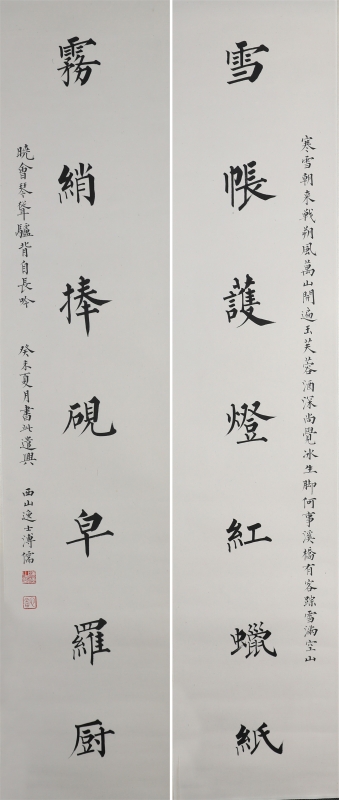 寒雪朝来戦朔風萬山開遍玉芙蓉酒深尚覺冰生脚何事溪橋有客踪雪滿空山
雪帳護燈紅蠟紙
霧綃捧硯皁羅厨
曉會琴聲驢背自長吟 癸未夏月書此遣興 西山逸士溥儒